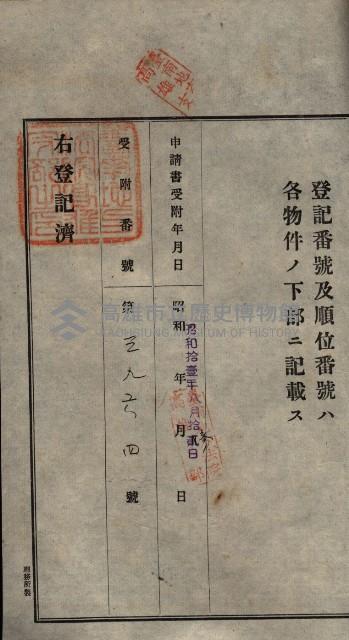 登記番號及順位番號ハ
各物件ノ下部ニ記載ス
申請書受附年月日
昭和 年 月 日
昭和拾壹年 月拾貳日
受附番號
第 三九六四 號
右登記濟
高雄市立歷史博物館
KAOHSIUNG MUSEUM OF HISTORY
刑務所製